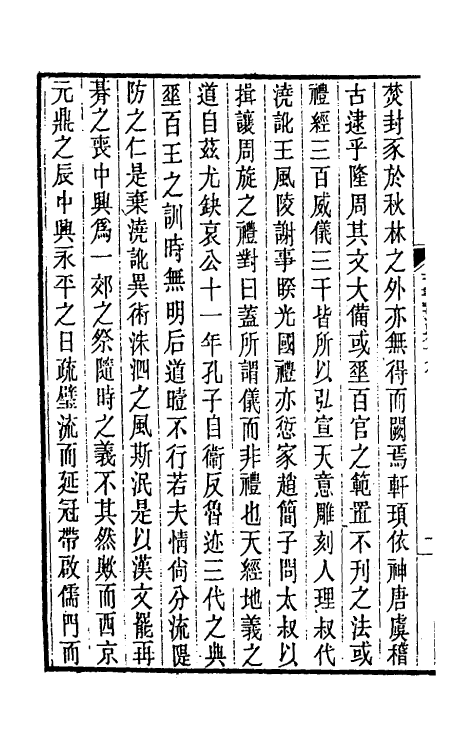 焚封豕於秋林之外亦無得而闕焉軒頊依神唐虞稽
古逮乎隆周其文大備或垂百官之範置不刊之法或
禮經三百威儀三千皆所以弘宣天意雕刻人理叔代
澆訛王風陵謝事睽光國禮亦愆家趙簡子問太叔以
揖讓周旋之禮對曰蓋所謂儀而非禮也天經地義之
道自茲尤缺哀公十一年孔子自衛反魯迹三代之典
垂百王之訓時無明后道噎不行若夫情尙分流隄
防之仁是棄澆訛異術洙泗之風斯泯是以漢文罷再
朞之喪中興爲一郊之祭隨時之義不其然歟而西京
元鼎之辰中興永平之日疏璧流而延冠帶啟儒門而